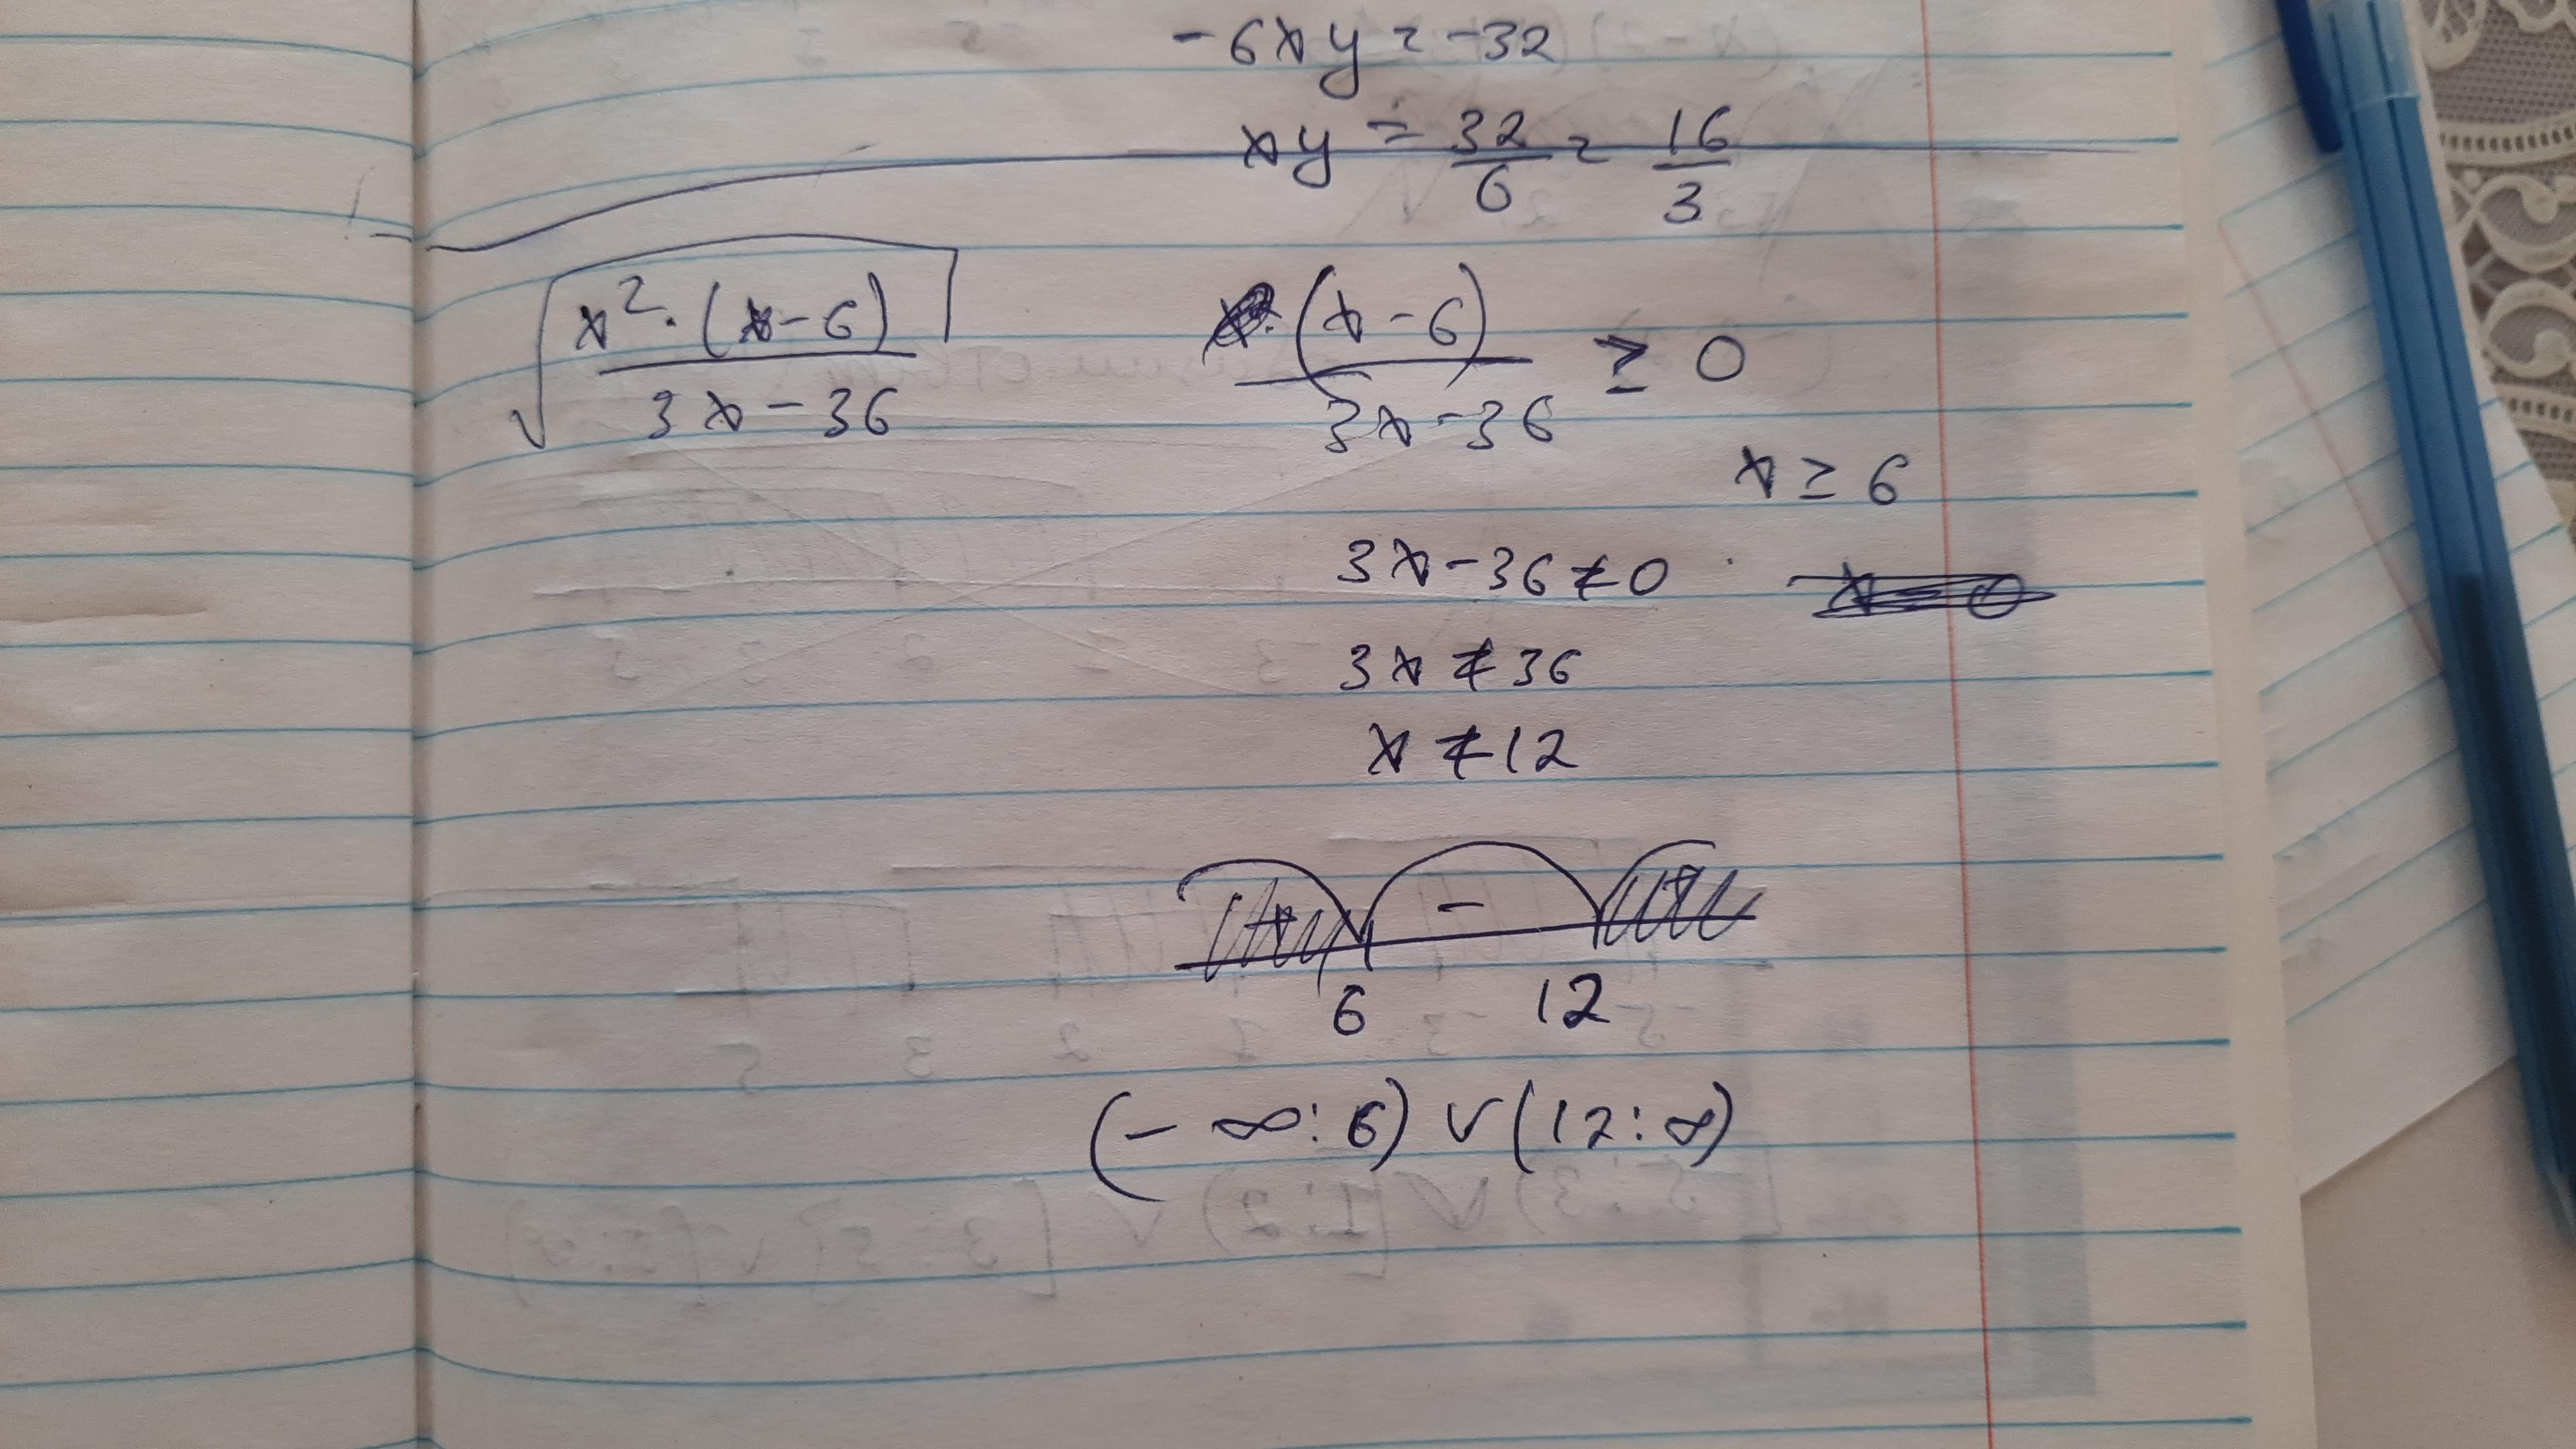 -6xy = -32
xy = 32/6 = 16/3
√(x²·(x-6)/(3x-36))
(x-6)/(3x-36) ≥ 0
x ≥ 6
3x-36≠0
3x ≠ 36
x ≠ 12
+ - +
6 12
(-∞:6) ∨ (12:∞)